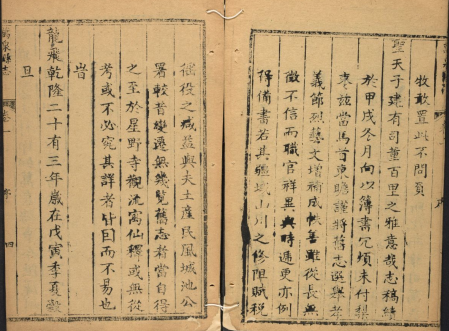 牧敢畧此不問負
聖天子建有司董百里之雅意哉志稿續
於甲戌冬月向以簿書冗煩未付梨
棗茲當馬首東瞻謹將舊志選舉孝
義節烈藝文增補成帙善雖從長無
徵不信而職官祥異與時遞更亦例
得備書若其疆域山川之修阻賦稅
徭役之盛益與夫土產民風城池公
署較昔變遷無幾覽舊志者當自得
之至於星野寺觀流寓仙釋或無從
考或不必究其詳者止因而不易也
旹
龍飛乾隆二十有三年歲在戊寅季夏
旦
卷一
序
四